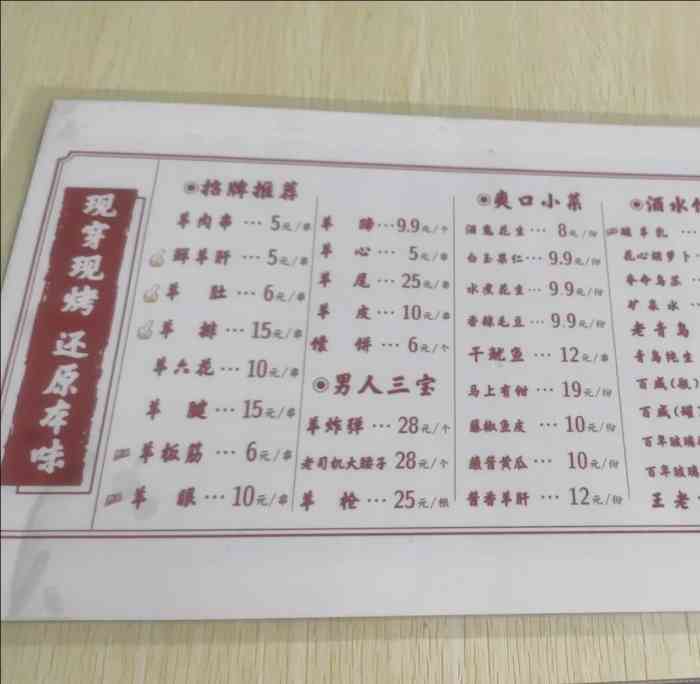 现穿现烤 还原本味
招牌推荐
羊肉串 ··· 5元/串
鲜羊肝 ··· 5元/串
羊 肚 ··· 6元/串
羊 排 ··· 15元/串
羊六花 ··· 10元/串
羊 腱 ··· 15元/串
羊板筋 ··· 6元/串
羊 眼 ··· 10元/串
羊 蹄 ··· 9.9元/个
羊 心 ··· 5元/串
羊 尾 ··· 25元/串
羊 皮 ··· 10元/串
馕 饼 ··· 6元/个
男人三宝
羊炸弹 ··· 28元/个
老司机大腰子 28元/个
羊 枪 ··· 25元/根
爽口小菜
酒鬼花生 ··· 8元/份
白玉果仁 ··· 9.9元/份
水煮花生 ··· 9.9元/份
香辣毛豆 ··· 9.9元/份
干鱿鱼 ··· 12元/串
马上有钳 ··· 19元/份
藤椒鱼皮 ··· 10元/份
蘸酱黄瓜 ··· 10元/份
酱香羊肝 ··· 12元/份
酒水
酸羊乳 ···
花心胡萝卜
夺命乌苏 ···
矿泉水 ···
老青岛
青岛纯生
百威(瓶)
百威(罐)
百年玻璃
百年玻璃
王老